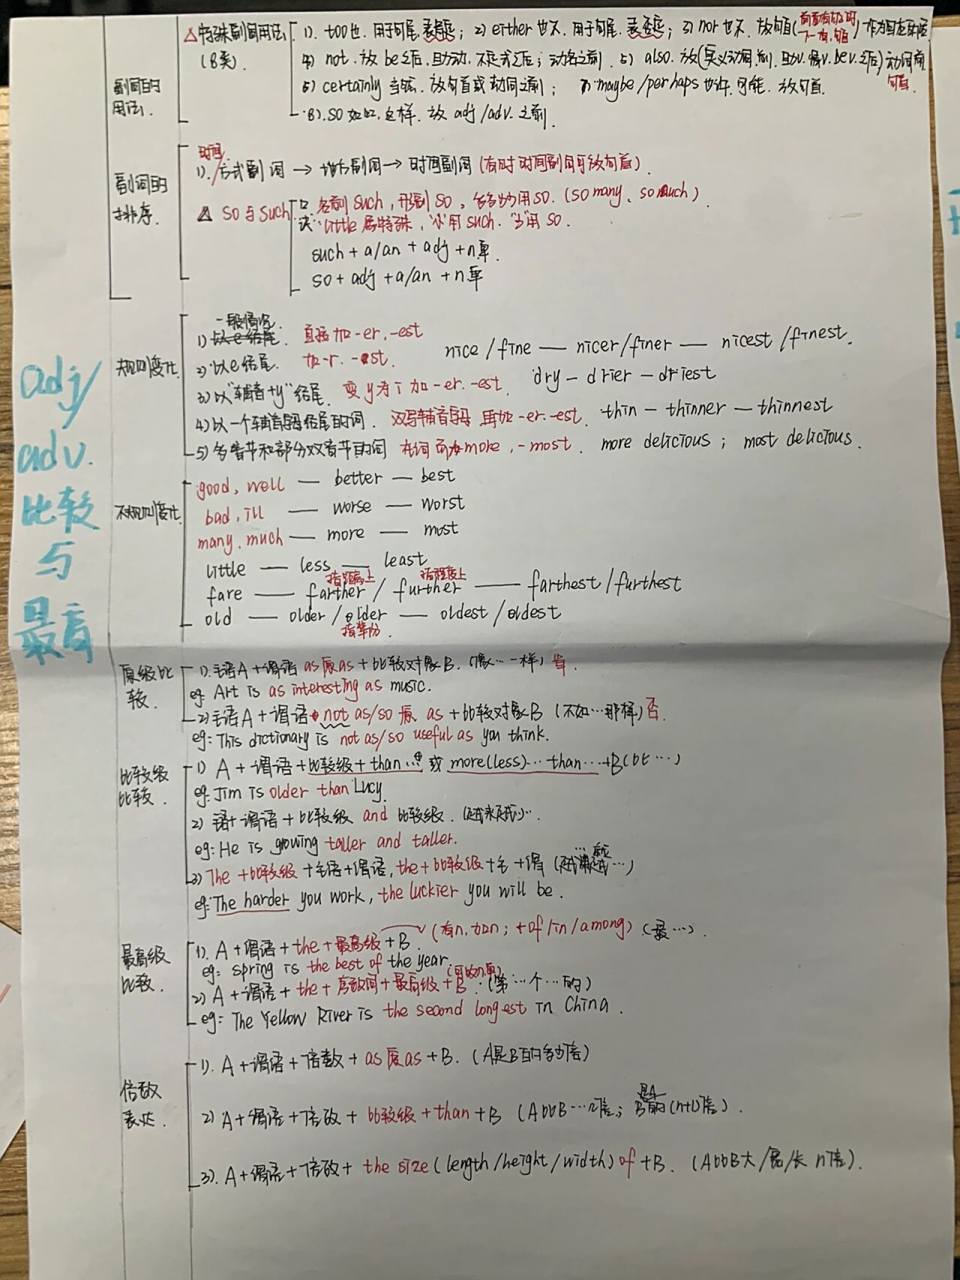 adj/
adv.
比较
与
最高
副词的
用法.
△特殊副词用法
(8类)
1). too也. 用于句尾. 表肯定; 2) either 也不. 用于句尾. 表否定; 3) nor 也不. 放句首
4) not. 放 be之后, 助动.
5) also. 放(实义动词前, 助v.情v.bev.之后)
6) certainly 当然. 放句首或动词之前; 7) maybe/perhaps 也许.可能. 放句首.
8). so 如此.这样. 放 adj/adv. 之前.
副词的
排序.
1). 方式副词 → 地方副词 → 时间副词 (有时时间副词可放句首).
△ so 与 such
名前 such, 形前 so, 多多少少用 so. (so many、so much)
little 属特殊, "小"用 such. "少"用 so.
such + a/an + adj + n单.
so + adj + a/an + n单
规则变化
一般情况.
1) 以e结尾. 直接加 -er. -est
2) 以e结尾. 加-r. -est. nice / fine — nicer/finer — nicest / finest.
3) 以"辅音+y"结尾. 变y为i加 -er. -est. dry — drier — driest
4) 以一个辅音字母结尾的词. 双写辅音字母, 再加 -er. -est. thin — thinner — thinnest
5) 多音节和部分双音节的词 在词前加more, -most. more delicious ; most delicious.
不规则变化.
good, well — better — best
bad, ill — worse — worst
many, much — more — most
little — less — least
fare — farther / further — farthest / furthest
指距离上 指程度上
old — older / older — oldest / oldest
指年份.
原级比
较.
1). 主语A + 谓语 as 原 as + 比较对象B. (像…一样) 肯.
eg: Art is as interesting as music.
2) 主语A + 谓语 + not as/so 原 as + 比较对象B (不如…那样) 否
eg: This dictionary is not as/so useful as you think.
比较级
比较.
1) A + 谓语 + 比较级 + than … 或 more(less)… than … + B (比…)
eg: Jim is older than Lucy.
2) 主语 + 谓语 + 比较级 and 比较级. (越来越)…
eg: He is growing taller and taller.
3) The + 比较级 + 主语 + 谓语, the + 比较级 + 主 + 谓
eg: The harder you work, the luckier you will be.
最高级
比较.
1). A + 谓语 + the + 最高级 + B. (有n.加n; + of / in / among) (最…).
eg: Spring is the best of the year.
2) A + 谓语 + the + 序数词 + 最高级 + B. (第…个…的)
eg: The Yellow River is the second longest in China.
倍数
表达.
1). A + 谓语 + 倍数 + as 原 as + B. (A是B的多少倍)
2) A + 谓语 + 倍数 + 比较级 + than + B (A比B…n倍; 是A B的(n+1)倍).
3). A + 谓语 + 倍数 + the size (length / height / width) of + B. (A比B大/高/长 n倍).